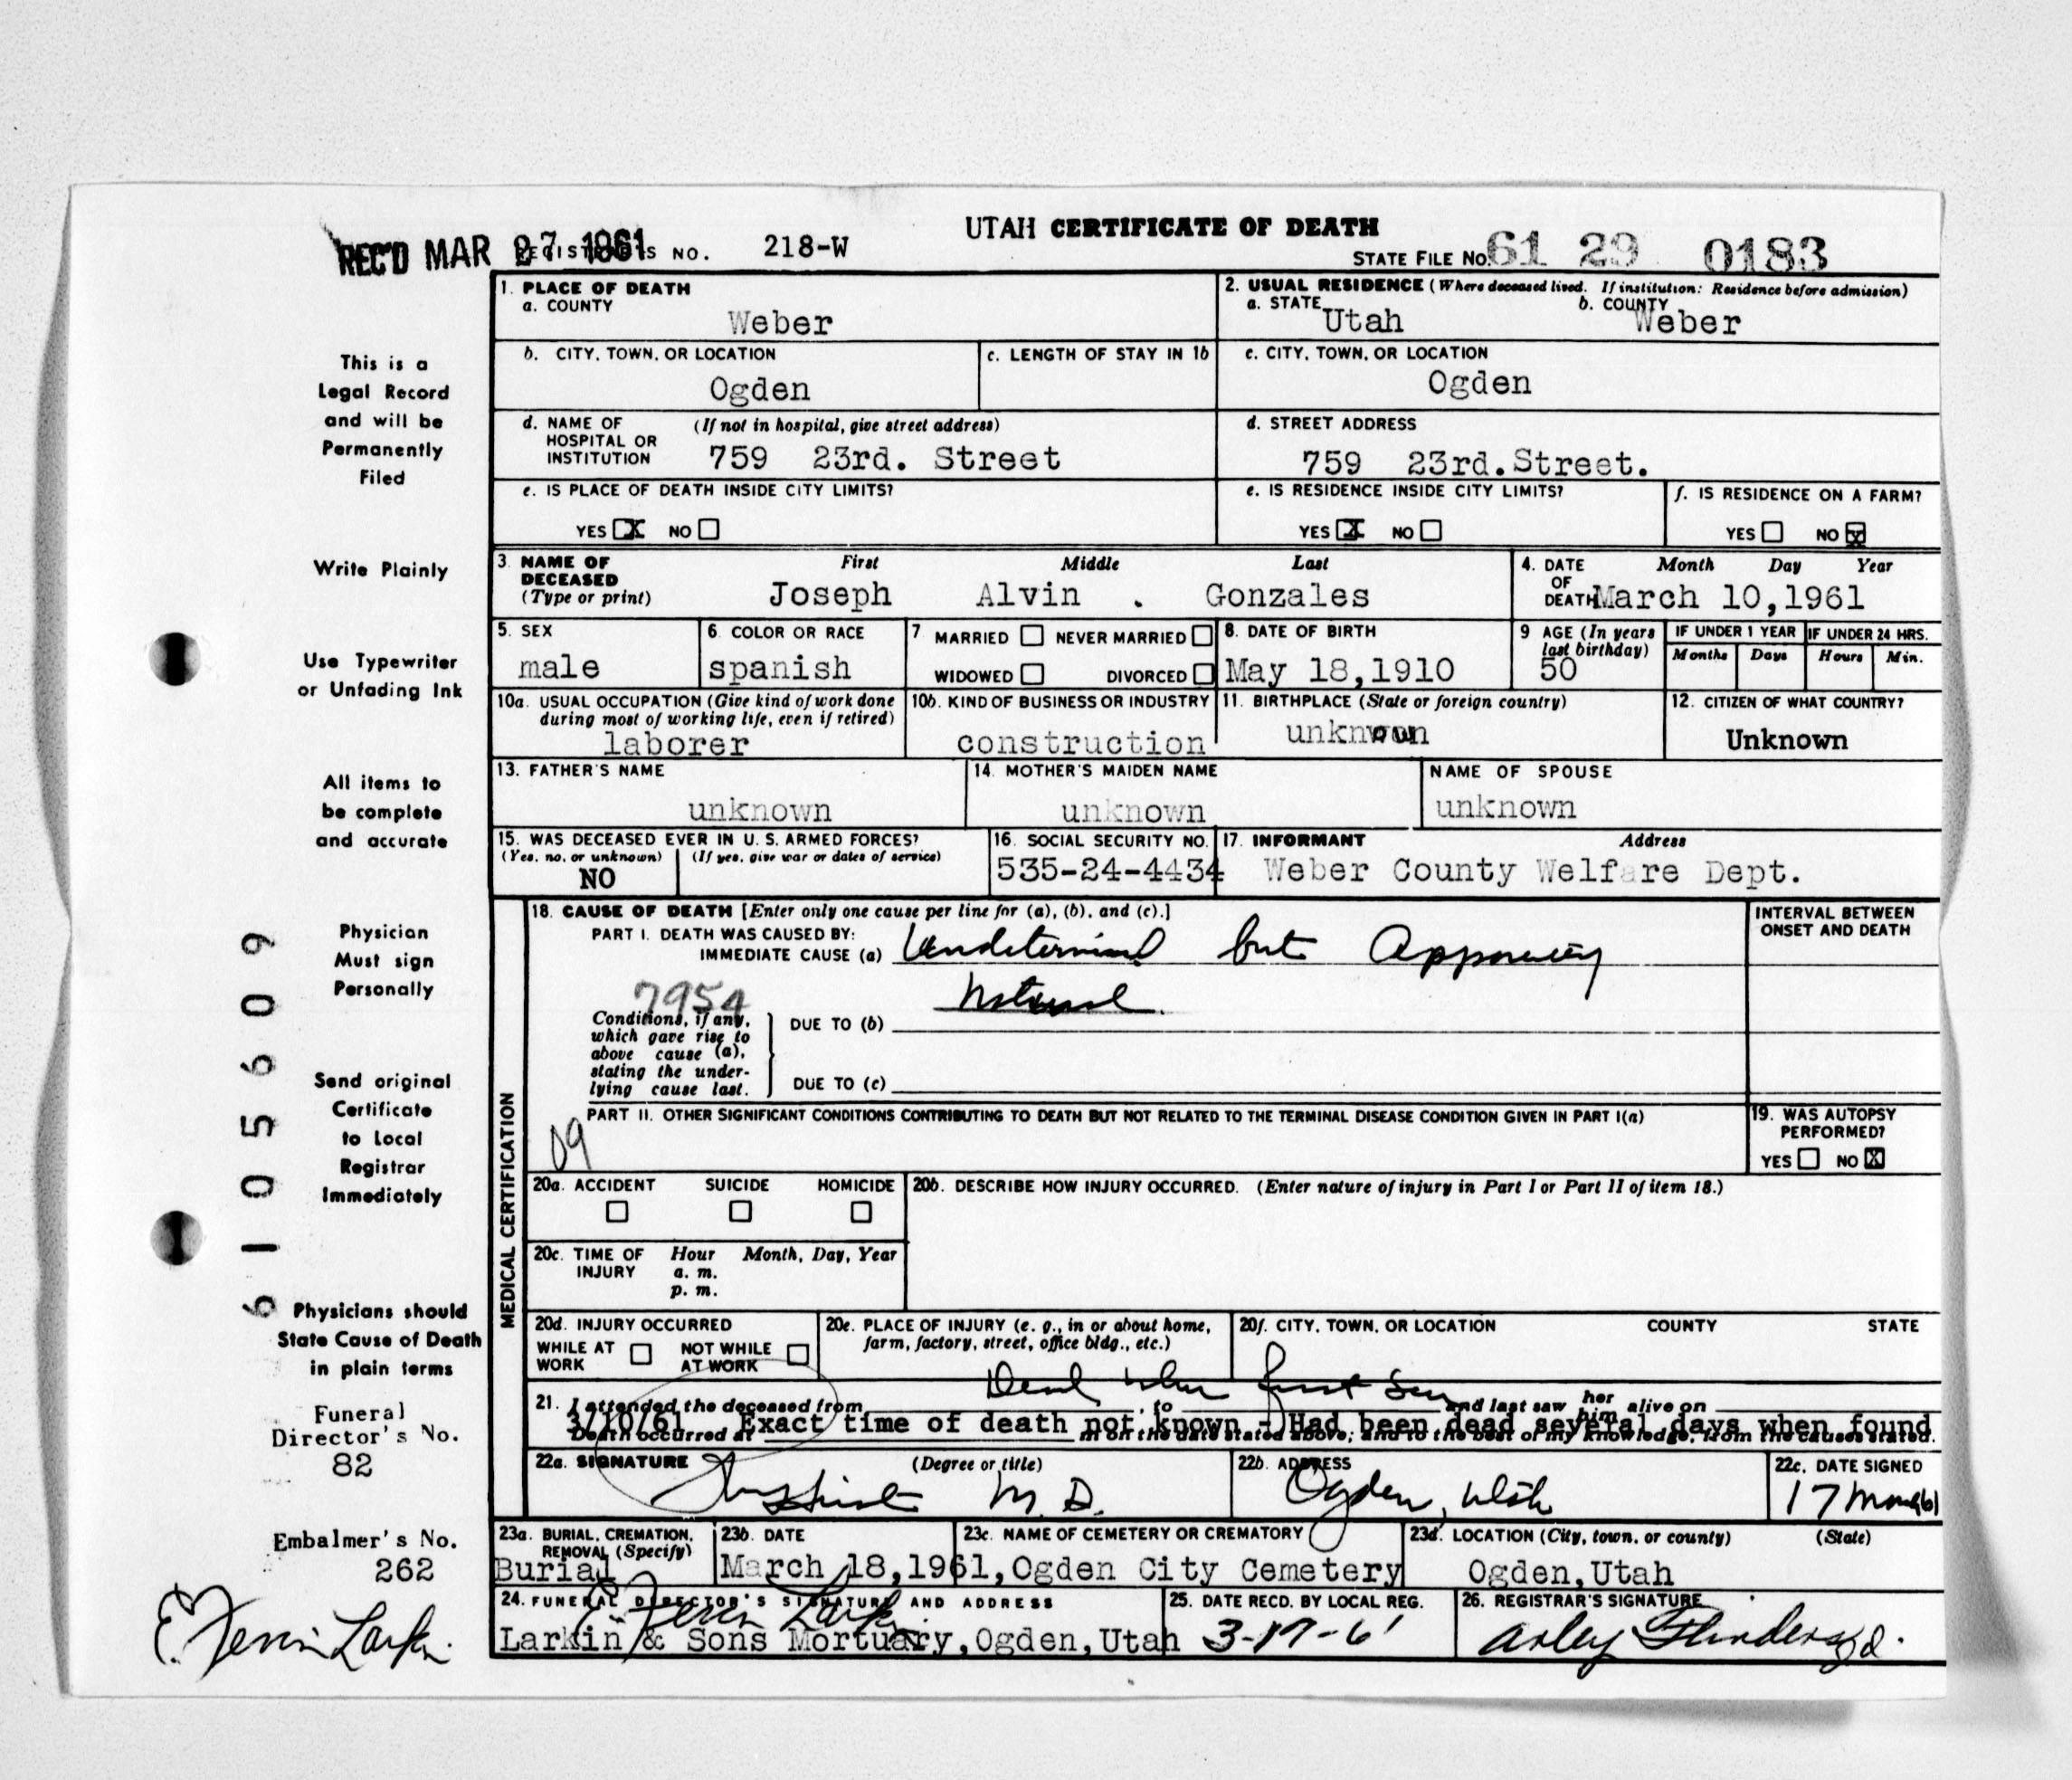 UTAH CERTIFICATE OF DEATH
REC'D MAR 27 1961 REGISTRAR'S NO. 218-W
STATE FILE NO. 61 29 0183
1. PLACE OF DEATH
a. COUNTY
Weber
2. USUAL RESIDENCE (Where deceased lived. If institution: Residence before admission)
a. STATE Utah b. COUNTY Weber
b. CITY, TOWN, OR LOCATION
Ogden
c. LENGTH OF STAY IN 1b
c. CITY, TOWN, OR LOCATION
Ogden
d. NAME OF HOSPITAL OR INSTITUTION (If not in hospital, give street address)
759 23rd. Street
d. STREET ADDRESS
759 23rd. Street.
e. IS PLACE OF DEATH INSIDE CITY LIMITS?
YES X NO
e. IS RESIDENCE INSIDE CITY LIMITS?
YES X NO
f. IS RESIDENCE ON A FARM?
YES NO X
3. NAME OF DECEASED (Type or print)
First Middle Last
Joseph Alvin . Gonzales
4. DATE OF DEATH Month Day Year
March 10,1961
5. SEX
male
6. COLOR OR RACE
spanish
7 MARRIED NEVER MARRIED
WIDOWED DIVORCED
8. DATE OF BIRTH
May 18,1910
9 AGE (In years last birthday)
50
IF UNDER 1 YEAR
Months Days
IF UNDER 24 HRS.
Hours Min.
10a. USUAL OCCUPATION (Give kind of work done during most of working life, even if retired)
laborer
10b. KIND OF BUSINESS OR INDUSTRY
construction
11. BIRTHPLACE (State or foreign country)
unknwon
12. CITIZEN OF WHAT COUNTRY?
Unknown
13. FATHER'S NAME
unknown
14. MOTHER'S MAIDEN NAME
unknown
NAME OF SPOUSE
unknown
15. WAS DECEASED EVER IN U. S. ARMED FORCES?
(Yes, no, or unknown) (If yes, give war or dates of service)
NO
16. SOCIAL SECURITY NO.
535-24-4434
17. INFORMANT Address
Weber County Welfare Dept.
MEDICAL CERTIFICATION
18. CAUSE OF DEATH [Enter only one cause per line for (a), (b), and (c).]
PART I. DEATH WAS CAUSED BY:
IMMEDIATE CAUSE (a) Undetermined but Apparently
Natural.
7954
Conditions, if any, which gave rise to above cause (a), stating the underlying cause last.
DUE TO (b)
DUE TO (c)
INTERVAL BETWEEN ONSET AND DEATH
PART II. OTHER SIGNIFICANT CONDITIONS CONTRIBUTING TO DEATH BUT NOT RELATED TO THE TERMINAL DISEASE CONDITION GIVEN IN PART I(a)
09
19. WAS AUTOPSY PERFORMED?
YES NO X
20a. ACCIDENT SUICIDE HOMICIDE
20b. DESCRIBE HOW INJURY OCCURRED. (Enter nature of injury in Part I or Part II of item 18.)
20c. TIME OF INJURY Hour Month, Day, Year
a. m.
p. m.
20d. INJURY OCCURRED
WHILE AT WORK NOT WHILE AT WORK
20e. PLACE OF INJURY (e. g., in or about home, farm, factory, street, office bldg., etc.)
20f. CITY, TOWN, OR LOCATION COUNTY STATE
Dead when first Seen
21. I attended the deceased from , to and last saw her him alive on
3/10/61 Exact time of death not known - Had been dead several days when found
Death occurred at m on the date stated above; and to the best of my knowledge, from the causes stated.
22a. SIGNATURE (Degree or title)
M. D.
22b. ADDRESS
Ogden, Utah
22c. DATE SIGNED
17 Mar 61
23a. BURIAL, CREMATION, REMOVAL (Specify)
Burial
23b. DATE
March 18,1961,
23c. NAME OF CEMETERY OR CREMATORY
Ogden City Cemetery
23d. LOCATION (City, town, or county) (State)
Ogden,Utah
24. FUNERAL DIRECTOR'S SIGNATURE AND ADDRESS
E. Ferrin Larkin
Larkin & Sons Mortuary,Ogden,Utah
25. DATE RECD. BY LOCAL REG.
3-17-61
26. REGISTRAR'S SIGNATURE
Arley Flinders
This is a
Legal Record
and will be
Permanently
Filed
Write Plainly
Use Typewriter
or Unfading Ink
All items to
be complete
and accurate
Physician
Must sign
Personally
Send original
Certificate
to Local
Registrar
Immediately
Physicians should
State Cause of Death
in plain terms
Funeral
Director's No.
82
Embalmer's No.
262
E. Ferrin Larkin
6105609